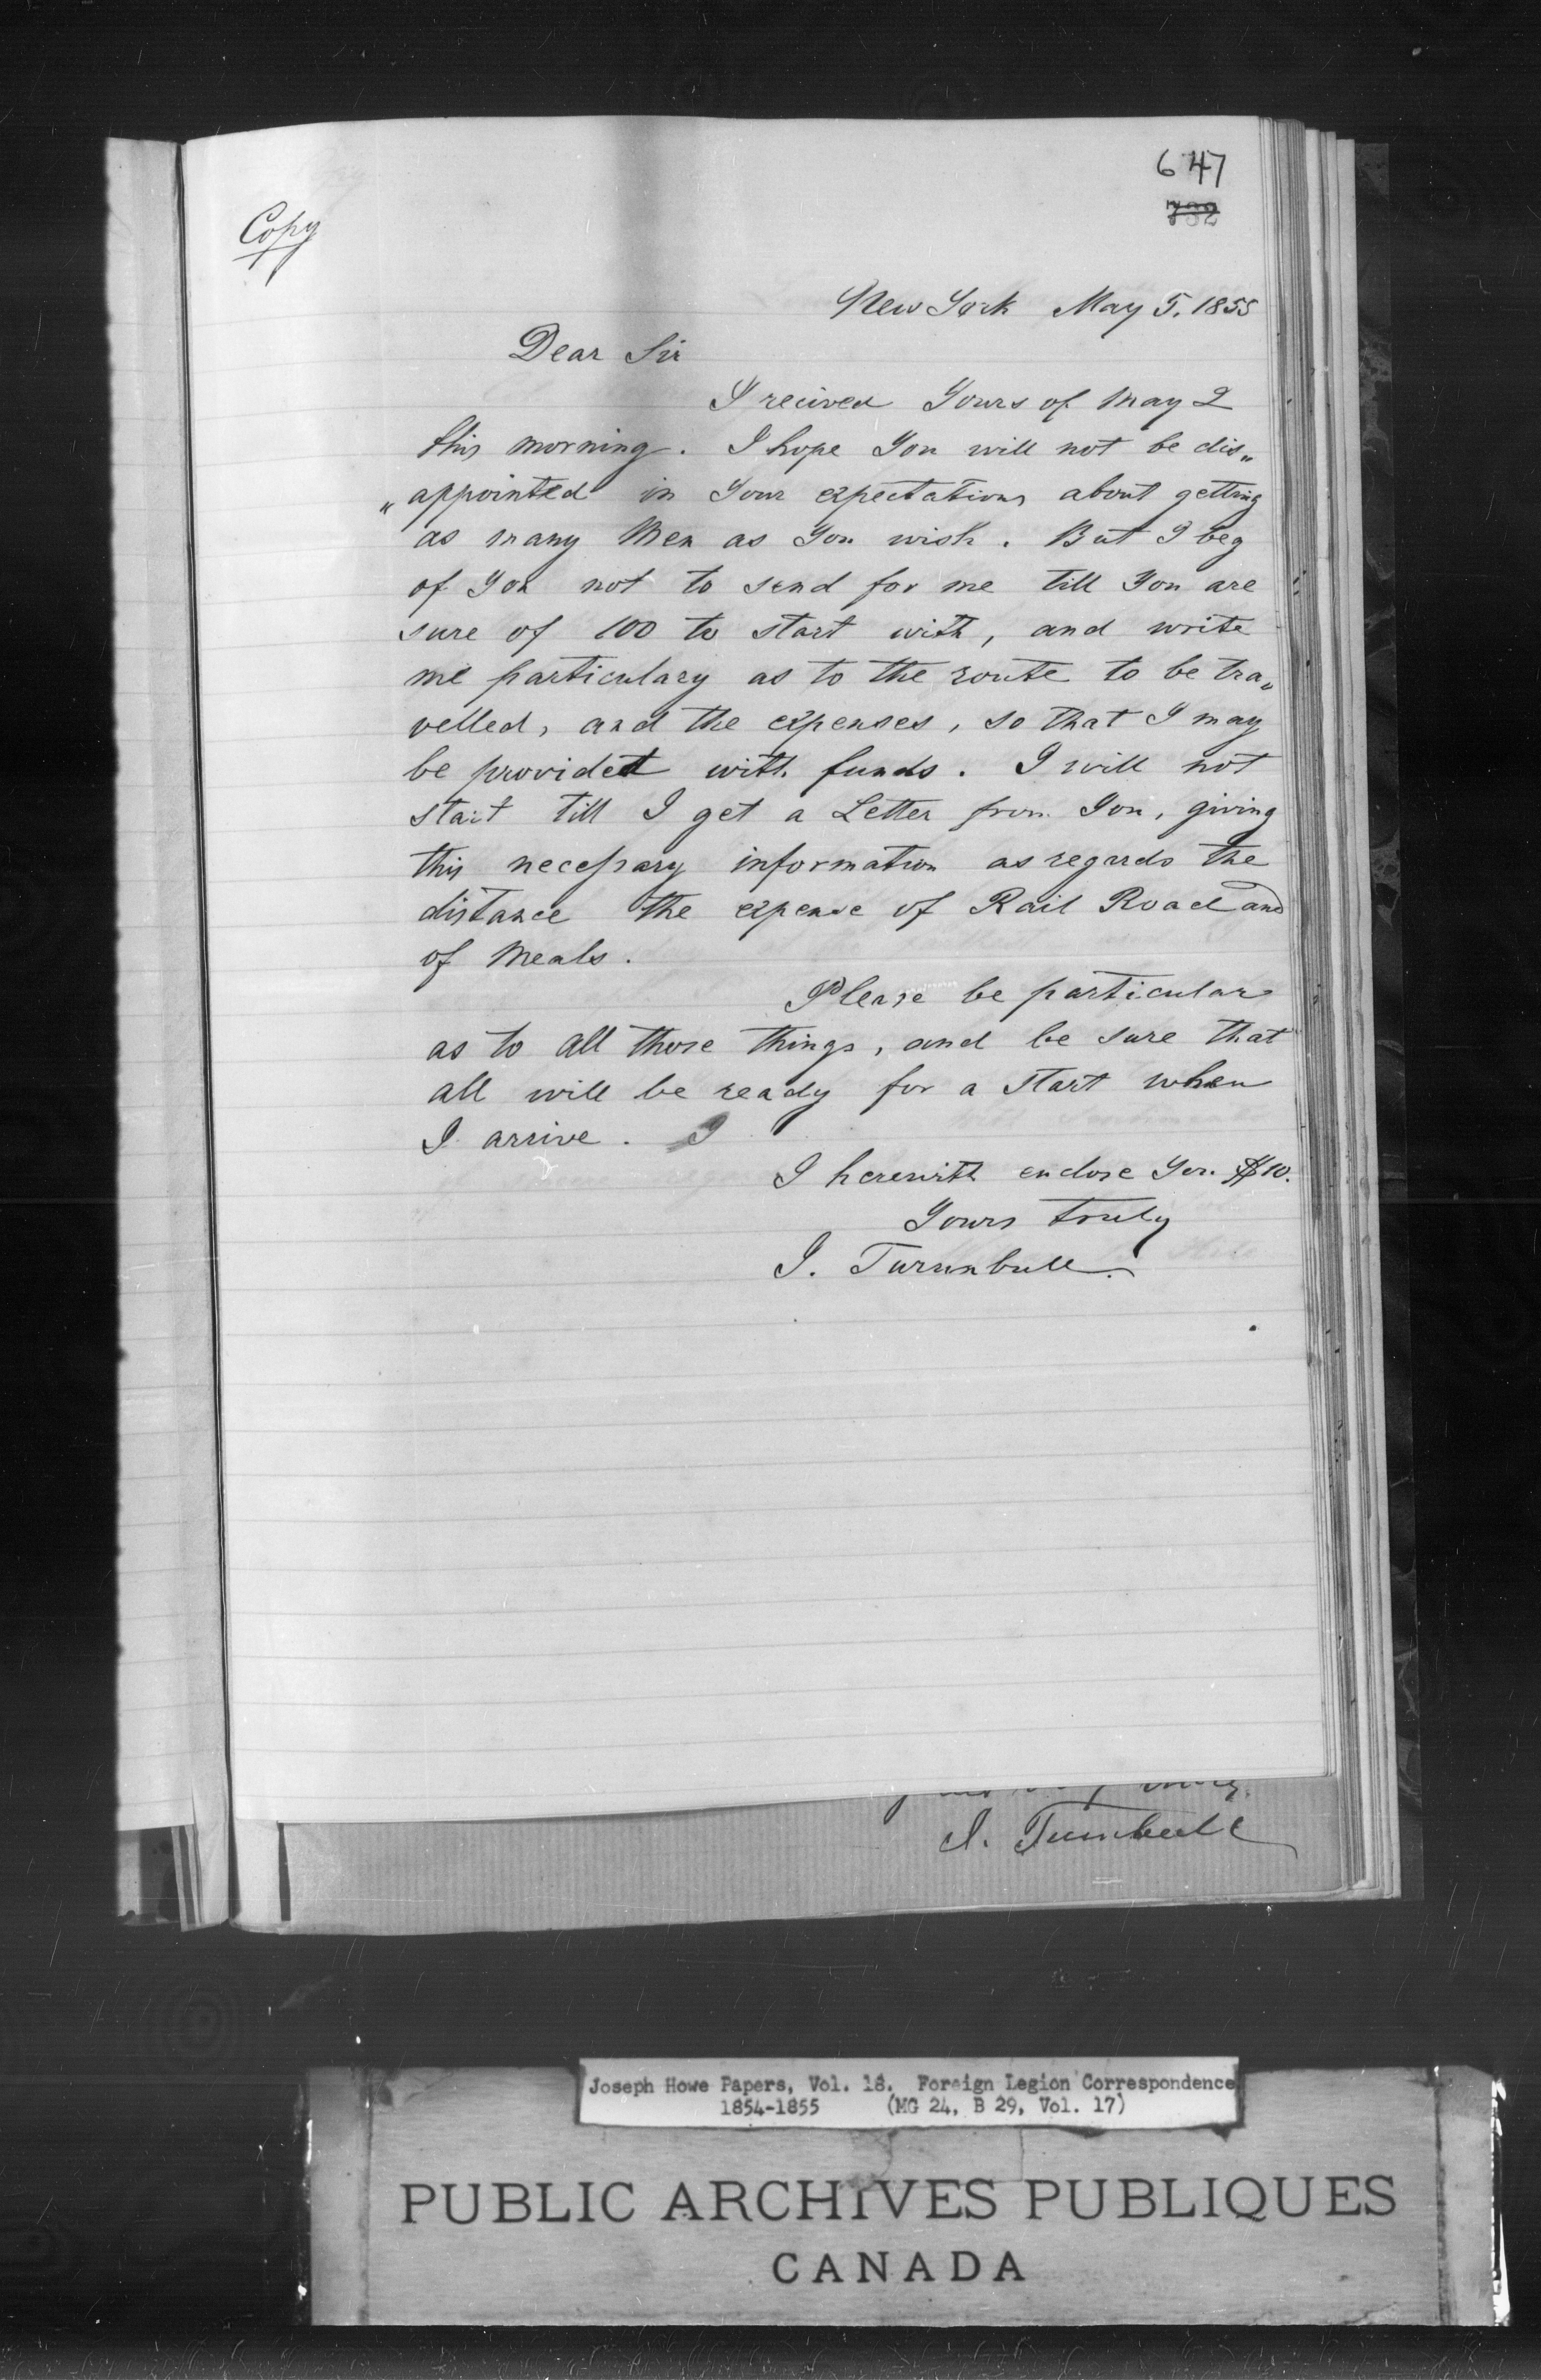 647
732
Copy
New York May 5. 1855
Dear Sir
I recived Yours of May 2
this morning. I hope You will not be dis„
„appointed in Your expectations about getting
as many Men as You wish. But I beg
of You not to send for me till You are
sure of 100 to start with, and write
me particulary as to the route to be tra„
velled, and the expenses, so that I may
be providet with funds. I will not
start till I get a Letter from You, giving
this necessary information as regards the
distance the expense of Rail Road and
of Meals.
Please be particular
as to all those things, and be sure that
all will be ready for a start when
I arrive. I
I herewith enclose You $10.
Yours truly
I. Turunbull.
I. Turnbull
Joseph Howe Papers, Vol. 18. Foreign Legion Correspondence
1854-1855 (MG 24, B 29, Vol. 17)
PUBLIC ARCHIVES PUBLIQUES
CANADA